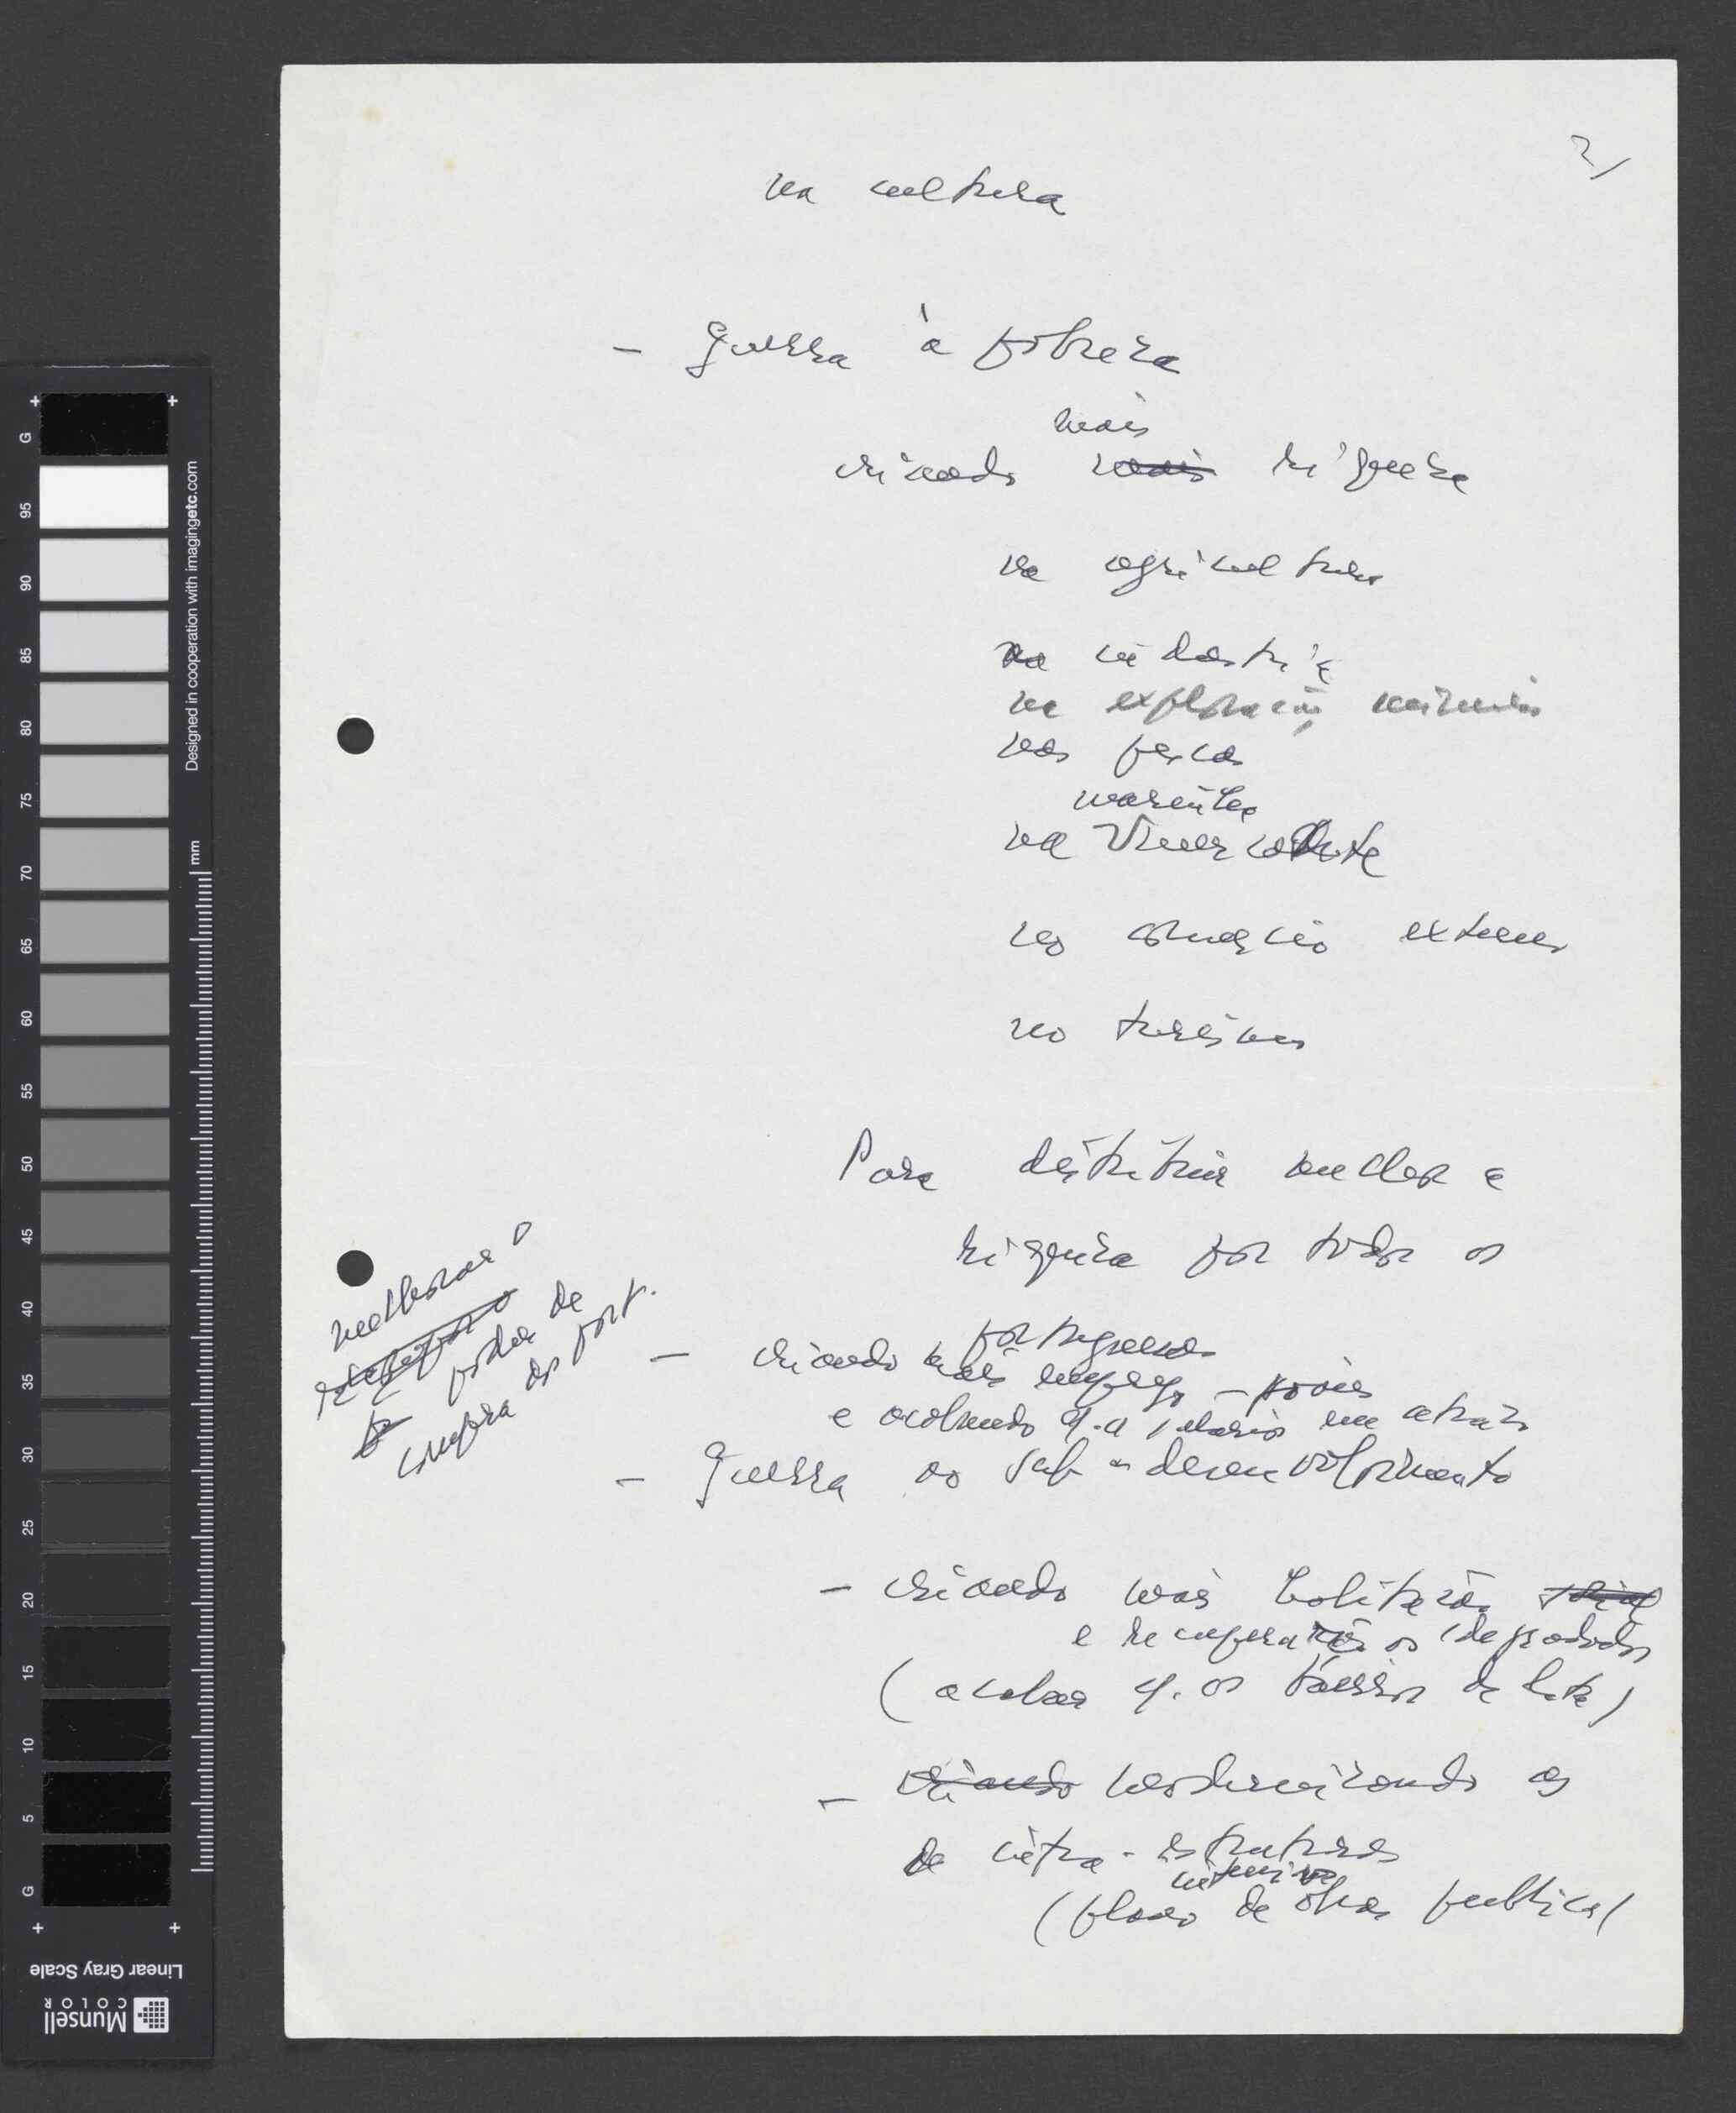 2/
na cultura
- Guerra à pobreza
mais
criando mais riqueza
na agricultura
na indústria
na exploração mineira
nas pescas
marinha
na mercante
no comércio externo
no turismo
Para distribuir melhor a
riqueza por todos os
portugueses
- criando mais emprego -
e acabando q. a salários em atraso
- Guerra ao sub-desenvolvimento
melhorar o
poder de
compra dos port.
- criando mais habitação
e recuperando os degradados
(acabar c. os bairros de lata)
- criando modernizando as
infra-estruturas
intensivo
(plano de obras publicas)
G 95 90 85 80 75 70 65 60 55 50 45 40 35 30 25 20 15 10 5 G
mm
Designed in cooperation with imagingetc.com
Linear Gray Scale
Munsell
COLOR